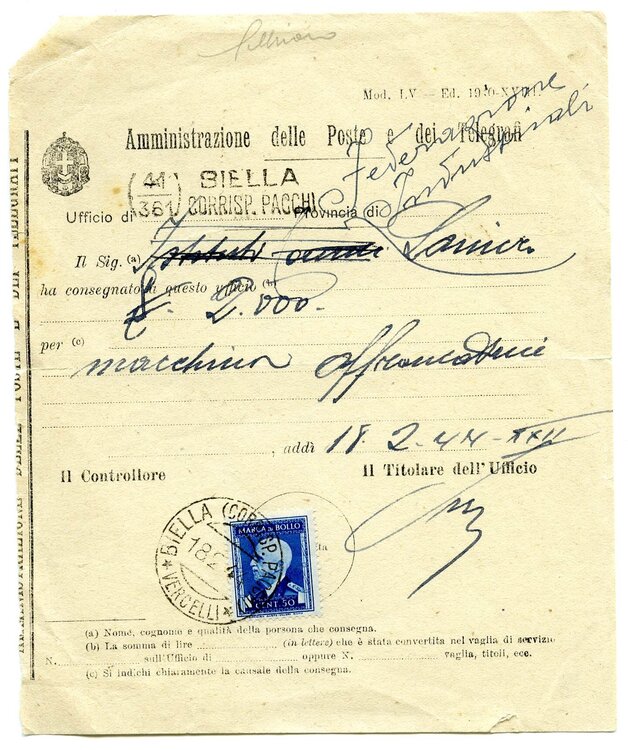 Mod. LV — Ed. 1940-XVIII
Amministrazione delle Poste e dei Telegrafi
Federazione
Industriali
41
381
BIELLA
CORRISP. PACCHI
Ufficio di
Provincia di
Il Sig. (a)
Laniera
ha consegnato a questo ufficio (b)
£ 2.000.-
per (c) macchina affrancatrice
, addì 18-2-44-XXII
Il Controllore
Il Titolare dell'Ufficio
BIELLA (CORRISP. PACCHI)
18.2
* VERCELLI *
MARCA DA BOLLO
CENT. 50
(a) Nome, cognome e qualità della persona che consegna.
(b) La somma di lire (in lettere) che è stata convertita nel vaglia di servizio
N. sull'Ufficio di oppure N. vaglia, titoli, ecc.
(c) Si indichi chiaramente la causale della consegna.